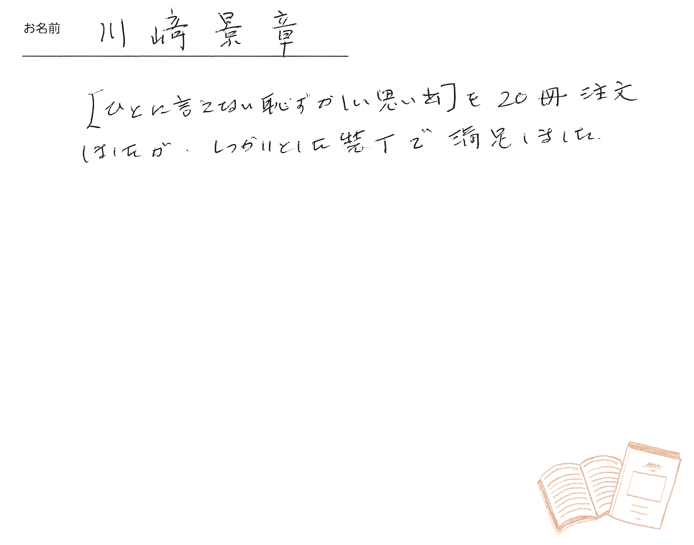 お名前 川﨑景章
[ひとに言えない恥ずかしい思い出]を20冊注文
しましたが、しっかりとした装丁で満足しました。